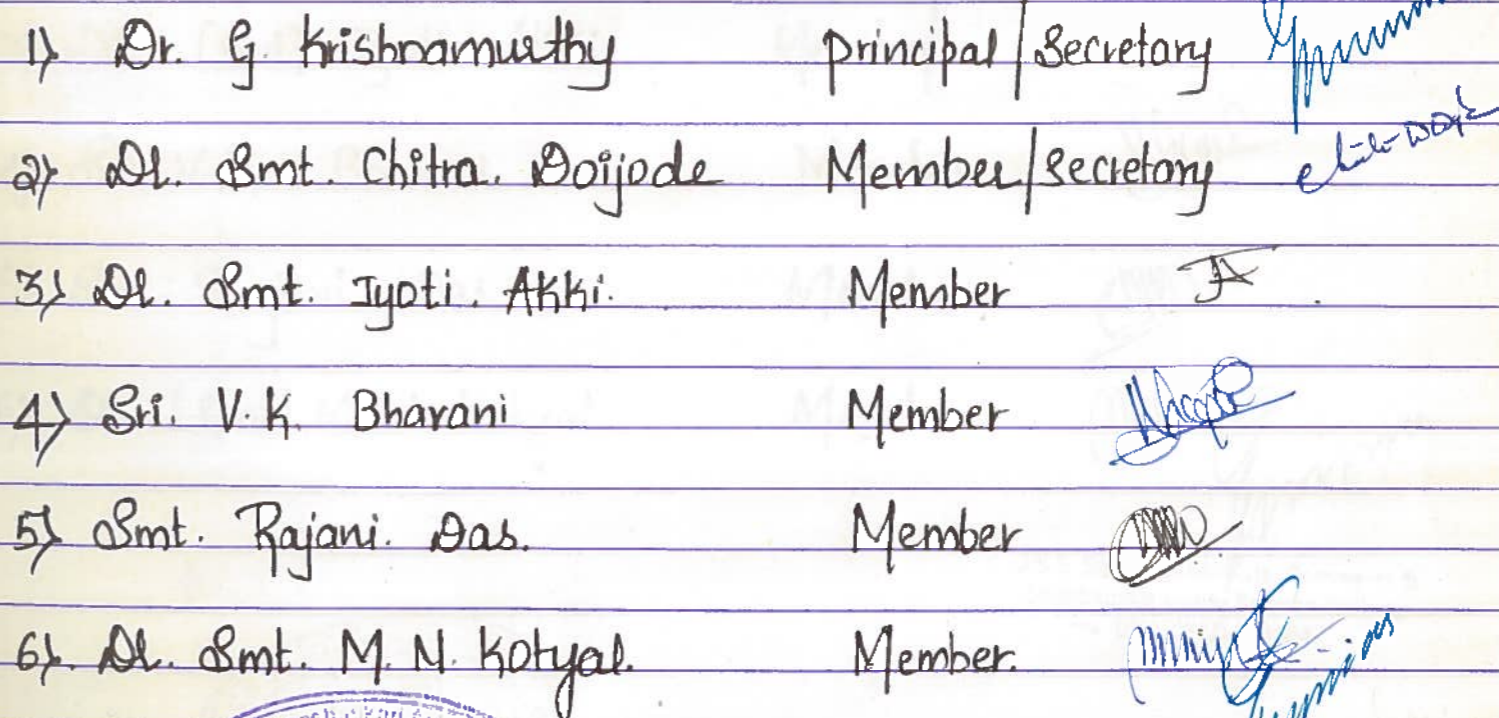 1) Dr. G. Krishnamurthy Principal/Secretary
2) Dr. Smt. Chitra. Doijode Member/Secretary
3) Dr. Smt. Jyoti. Akki. Member
4) Sri. V.K. Bharani Member
5) Smt. Rajani. Das. Member
6) Dr. Smt. M. N. Kotyal. Member.